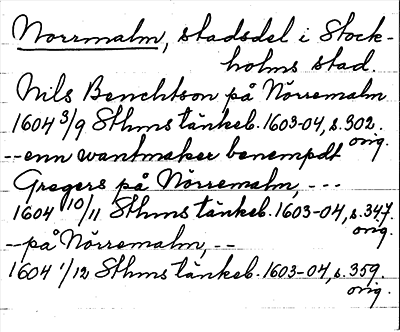 Norrmalm, stadsdel i Stock-
holms stad.
Nils Benchtson på Nörremalm
1604 3/9 Sthms tänkeb. 1603-04, s. 302.
orig.
--enn wantmaker benempdt
Gregers på Nörremalm, ---
1604 10/11 Sthms tänkeb. 1603-04, s. 347.
orig.
--på Nörremalm, --
1604 1/12 Sthms tänkeb. 1603-04, s. 359.
orig.